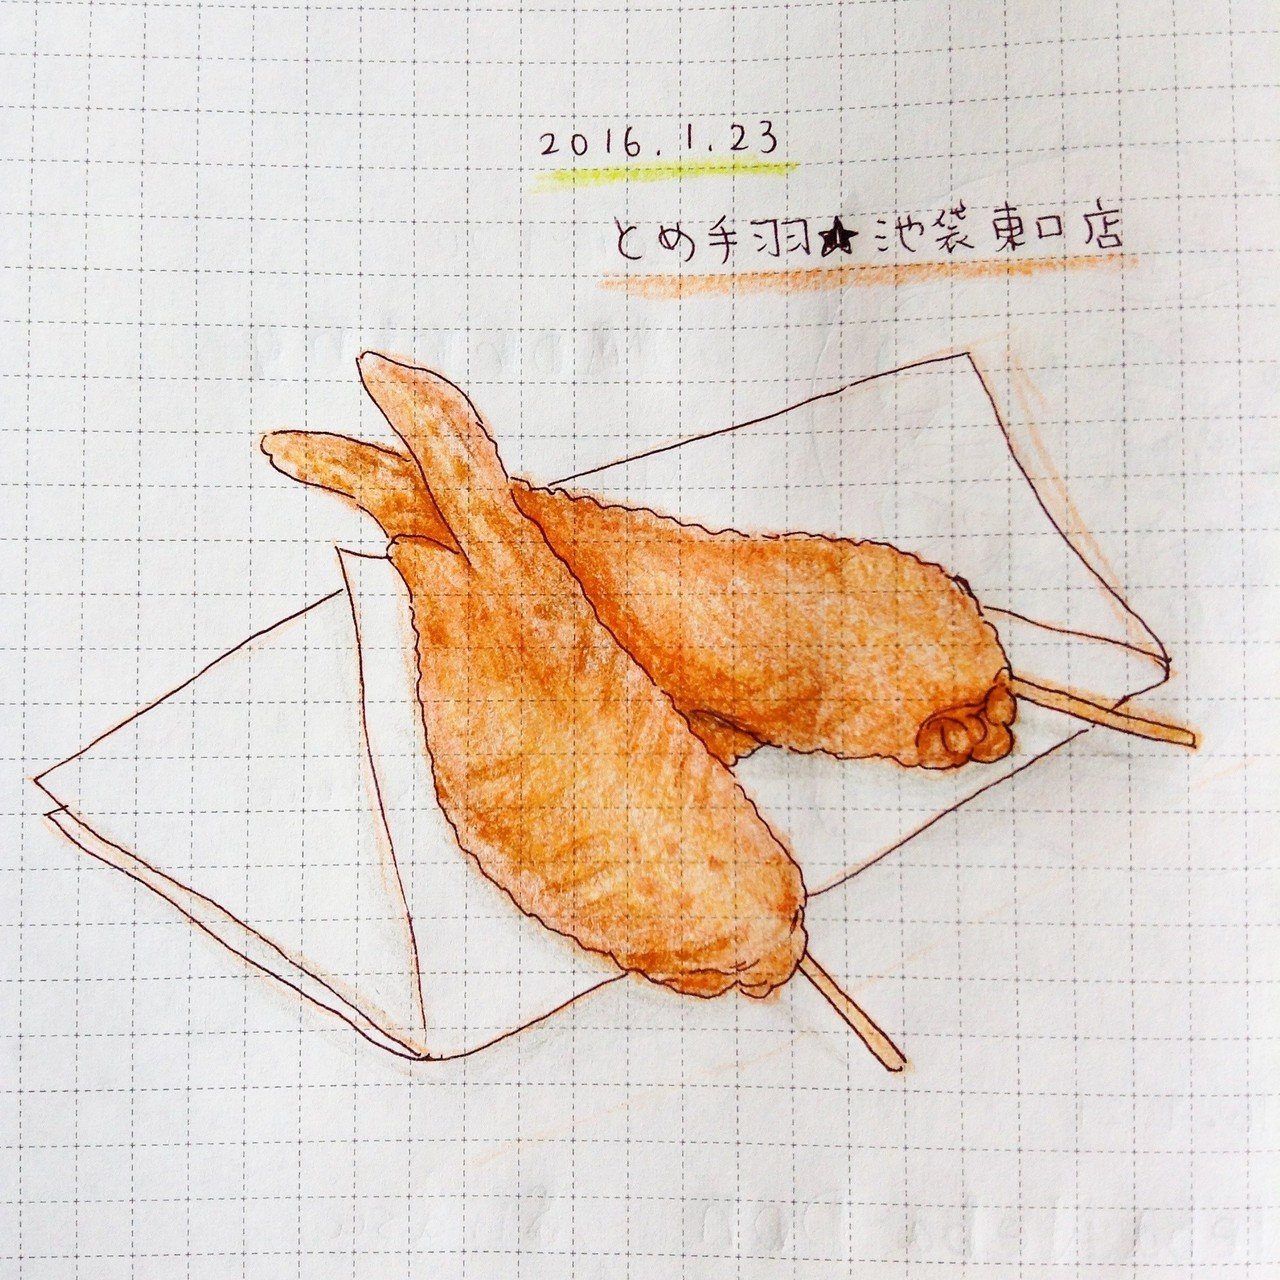 2016.1.23
とめ手羽★池袋東口店